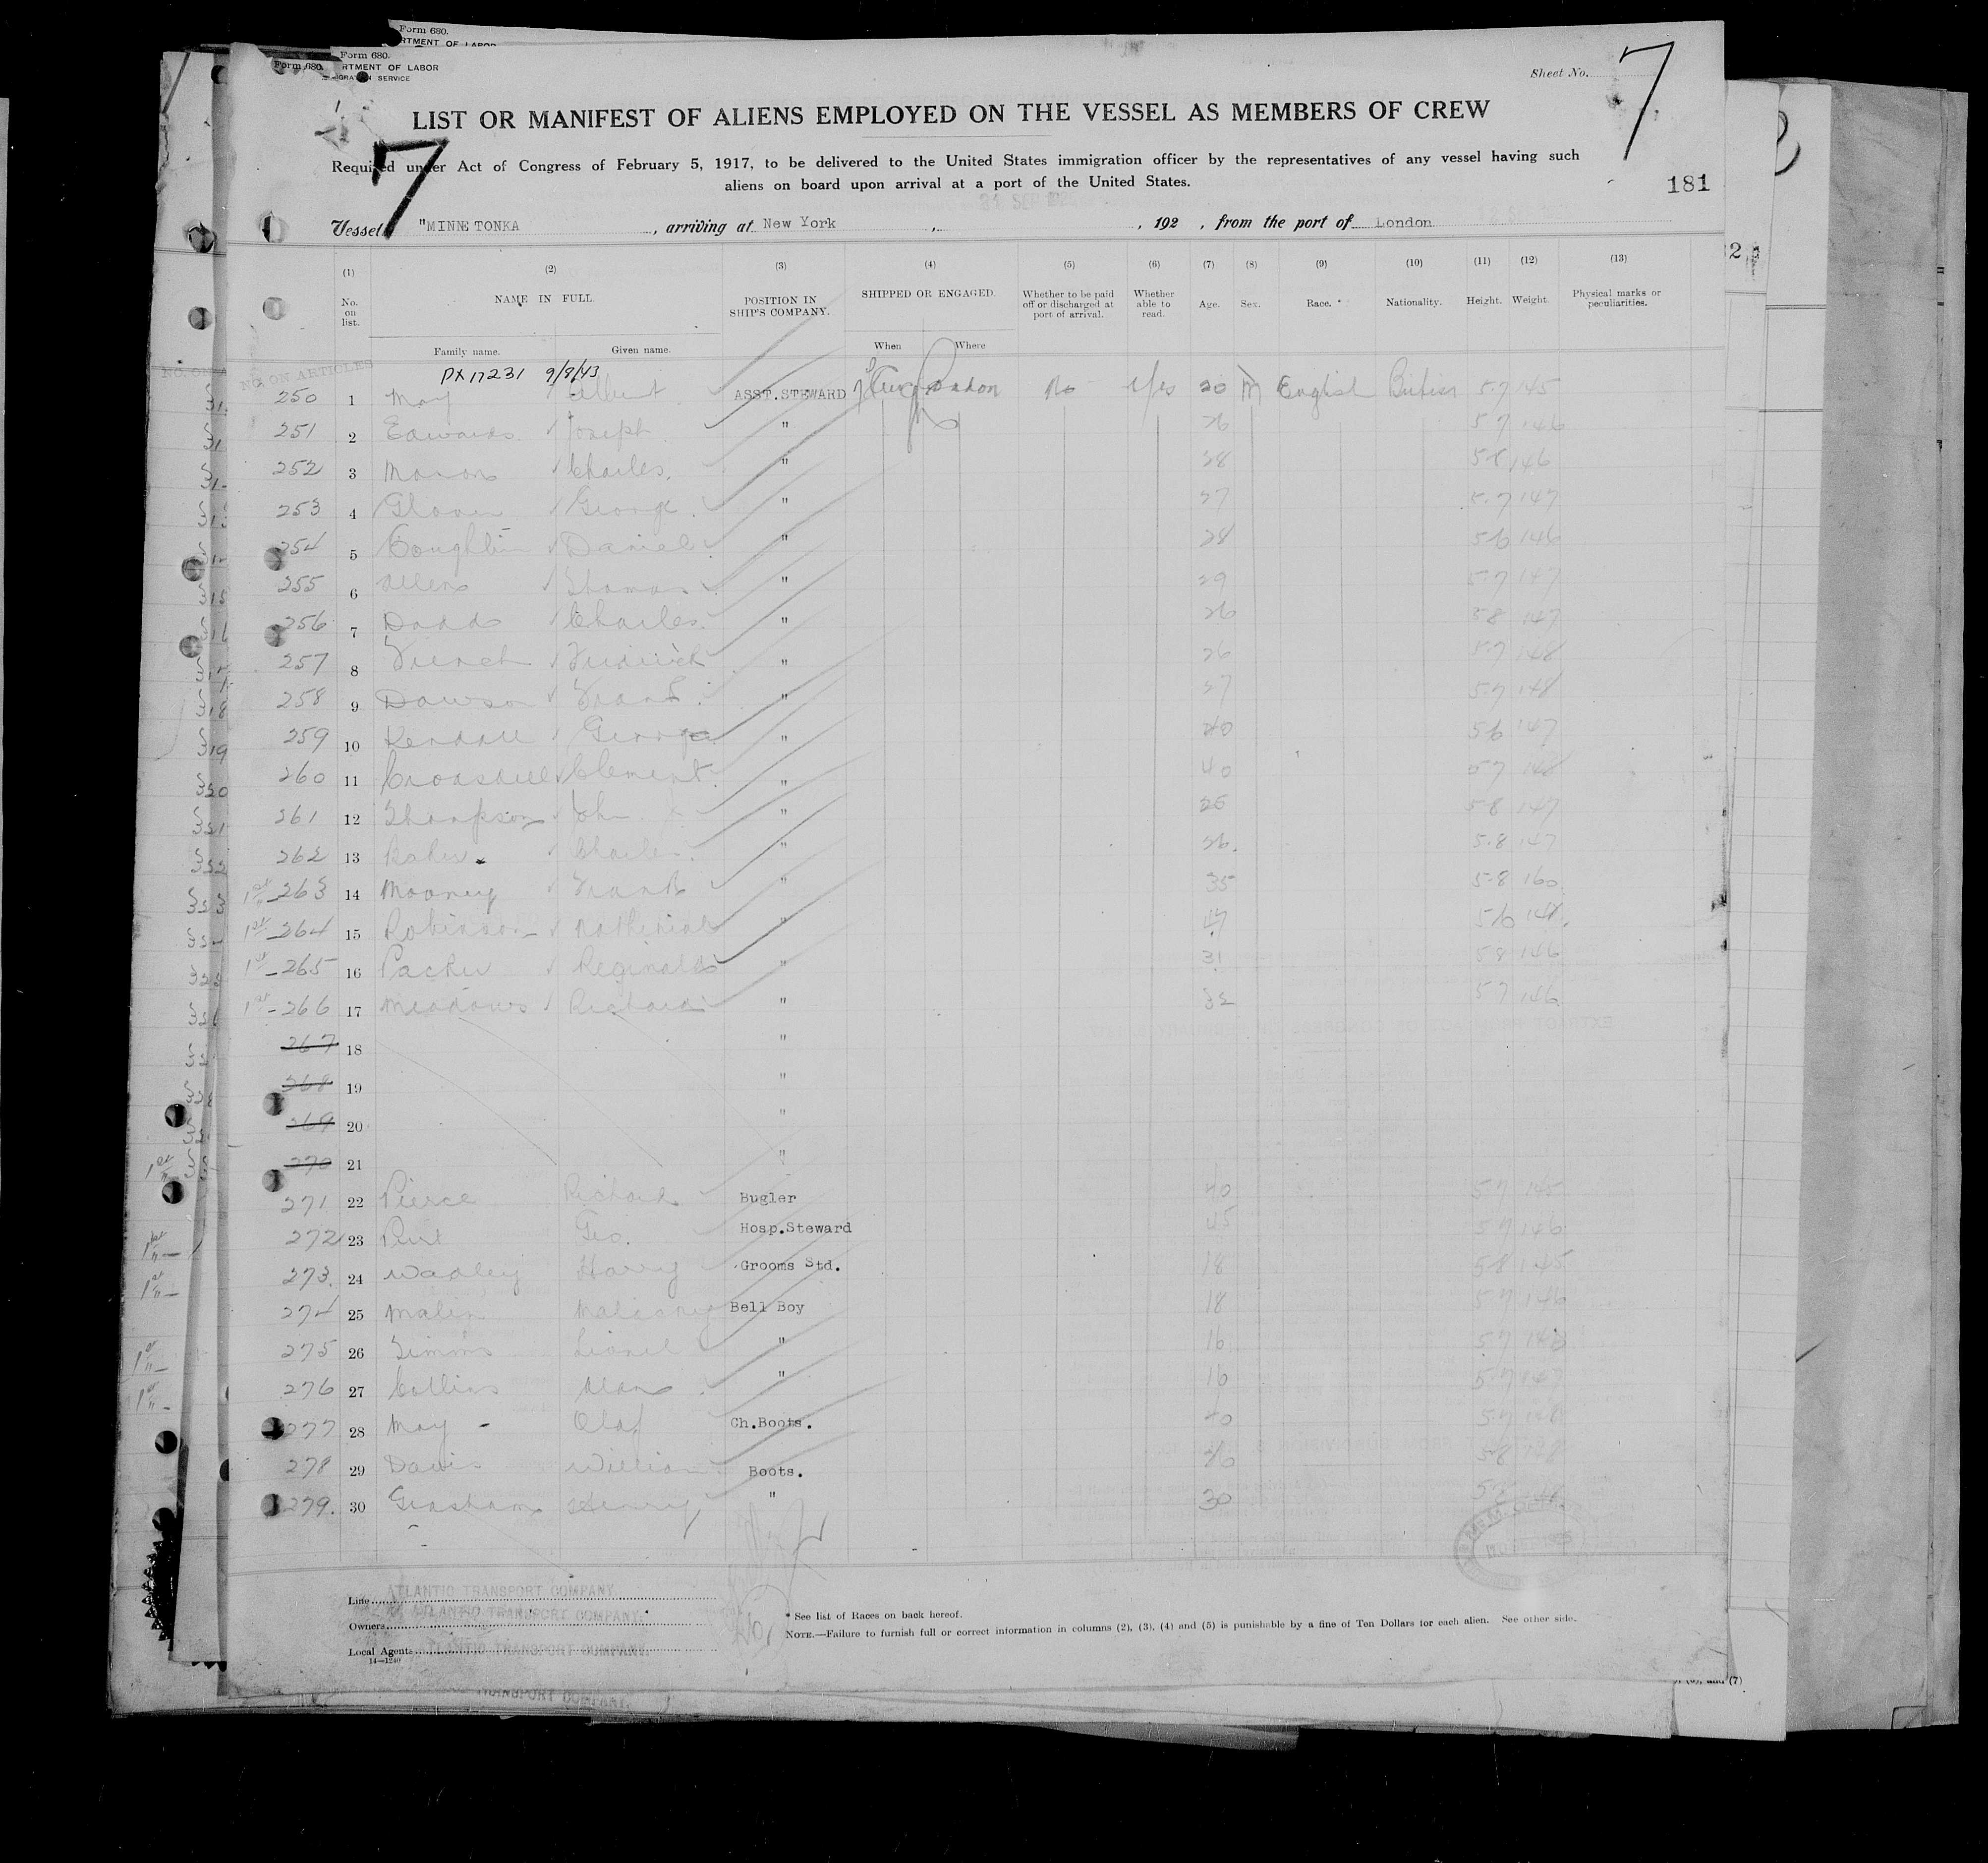 Form 680.
Form 680.
Form 680. RTMENT OF LABOR
SERVICE
Sheet No. 7
LIST OR MANIFEST OF ALIENS EMPLOYED ON THE VESSEL AS MEMBERS OF CREW
7
Required under Act of Congress of February 5, 1917, to be delivered to the United States immigration officer by the representatives of any vessel having such
aliens on board upon arrival at a port of the United States.
181
Vessel "MINNETONKA, arriving at New York, , 192 , from the port of London
(1) (2) (3) (4) (5) (6) (7) (8) (9) (10) (11) (12) (13)
No. on list. NAME IN FULL. POSITION IN SHIP'S COMPANY. SHIPPED OR ENGAGED. Whether to be paid off or discharged at port of arrival. Whether able to read. Age. Sex. Race.* Nationality. Height. Weight. Physical marks or peculiarities.
Family name. Given name. When Where
NO. ON ARTICLES PX17231 9/8/43
250 1 May Albert ASST.STEWARD London No Yes 20 M English British 5.7 145
251 2 Edwards Joseph " 26 5 7 146
252 3 Charles. " 28 5.8 146
253 4 Glover George " 27 5.7 147
254 5 Coughlin Daniel " 28 5.6 146
255 6 Allen Thomas " 29 5.7 147
256 7 Dodds Charles " 26 5.8 147
257 8 French " 26 5.7 148
258 9 Dawson Frank " 27 5.7 148
259 10 Kendall George " 40 5.6 147
260 11 Clement " 40 5.7 148
261 12 Thompson John " 5.8 147
262 13 Baker Charles " 26. 5.8 147
1st 263 14 Mooney Frank " 35 5.8 160
1st 264 15 Robinson " 5.6
1st 265 16 Packer Reginald " 31 5.8 146
1st 266 17 Meadows Richard " 32 5.7 146
267 18 "
268 19 "
269 20 "
270 21 "
271 22 Pierce Richard Bugler 40 5.7 145
272 23 Geo. Hosp.Steward 45 5.7 146
273 24 Wadley Harry Grooms Std. 18 5.8 145
274 25 Malin Bell Boy 18 5.7 146
275 26 Simms Lionel " 16 5.7
276 27 Collins Alan " 16 5.7 147
277 28 May - Olaf Ch.Boots. 40 5.7 148
278 29 Davis William Boots. 5.8
279. 30 Henry " 30
Line ATLANTIC TRANSPORT COMPANY.
Owners ATLANTIC TRANSPORT COMPANY.
Local Agents ATLANTIC TRANSPORT COMPANY.
14—1240
* See list of Races on back hereof.
NOTE.—Failure to furnish full or correct information in columns (2), (3), (4) and (5) is punishable by a fine of Ten Dollars for each alien. See other side.
TRANSPORT COMPANY.